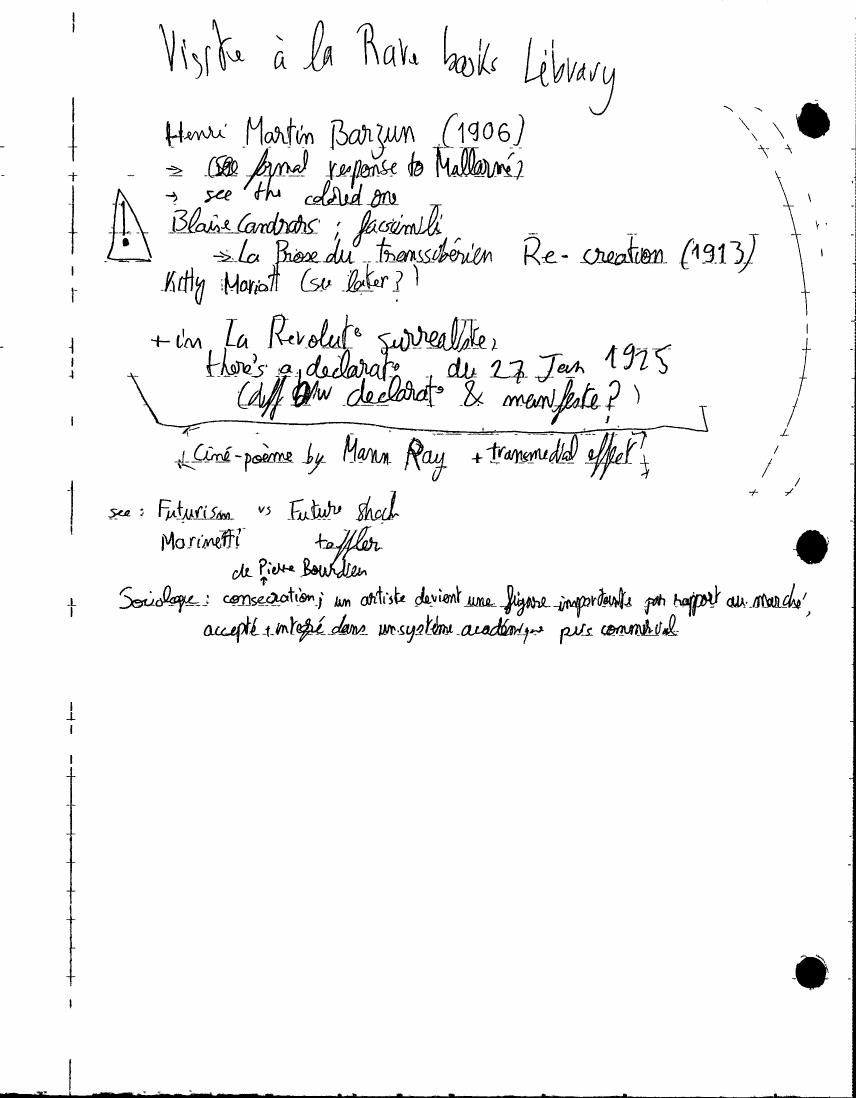 Visite à la Rare books Library
Henri Martin Barzun (1906)
→ (see formal response to Mallarmé)
→ see the colored one
Blaise Candrars ; facsimili
→ La Prose du transsibérien Re-creation (1913)
Kitty Mariott (see later?)
+ in La Revoluto surrealiste,
there's a declarato du 27 Jan 1925
(diff b/w declarato & manifeste?)
Ciné-poème by Mann Ray + transmedial effect
see : Futurism vs Future shock
Marinetti toffler
de Pierre Bourdieu
Sociologue : consecration ; un artiste devient une figure importante par rapport au marché,
accepté + intégré dans un système académique puis commercial